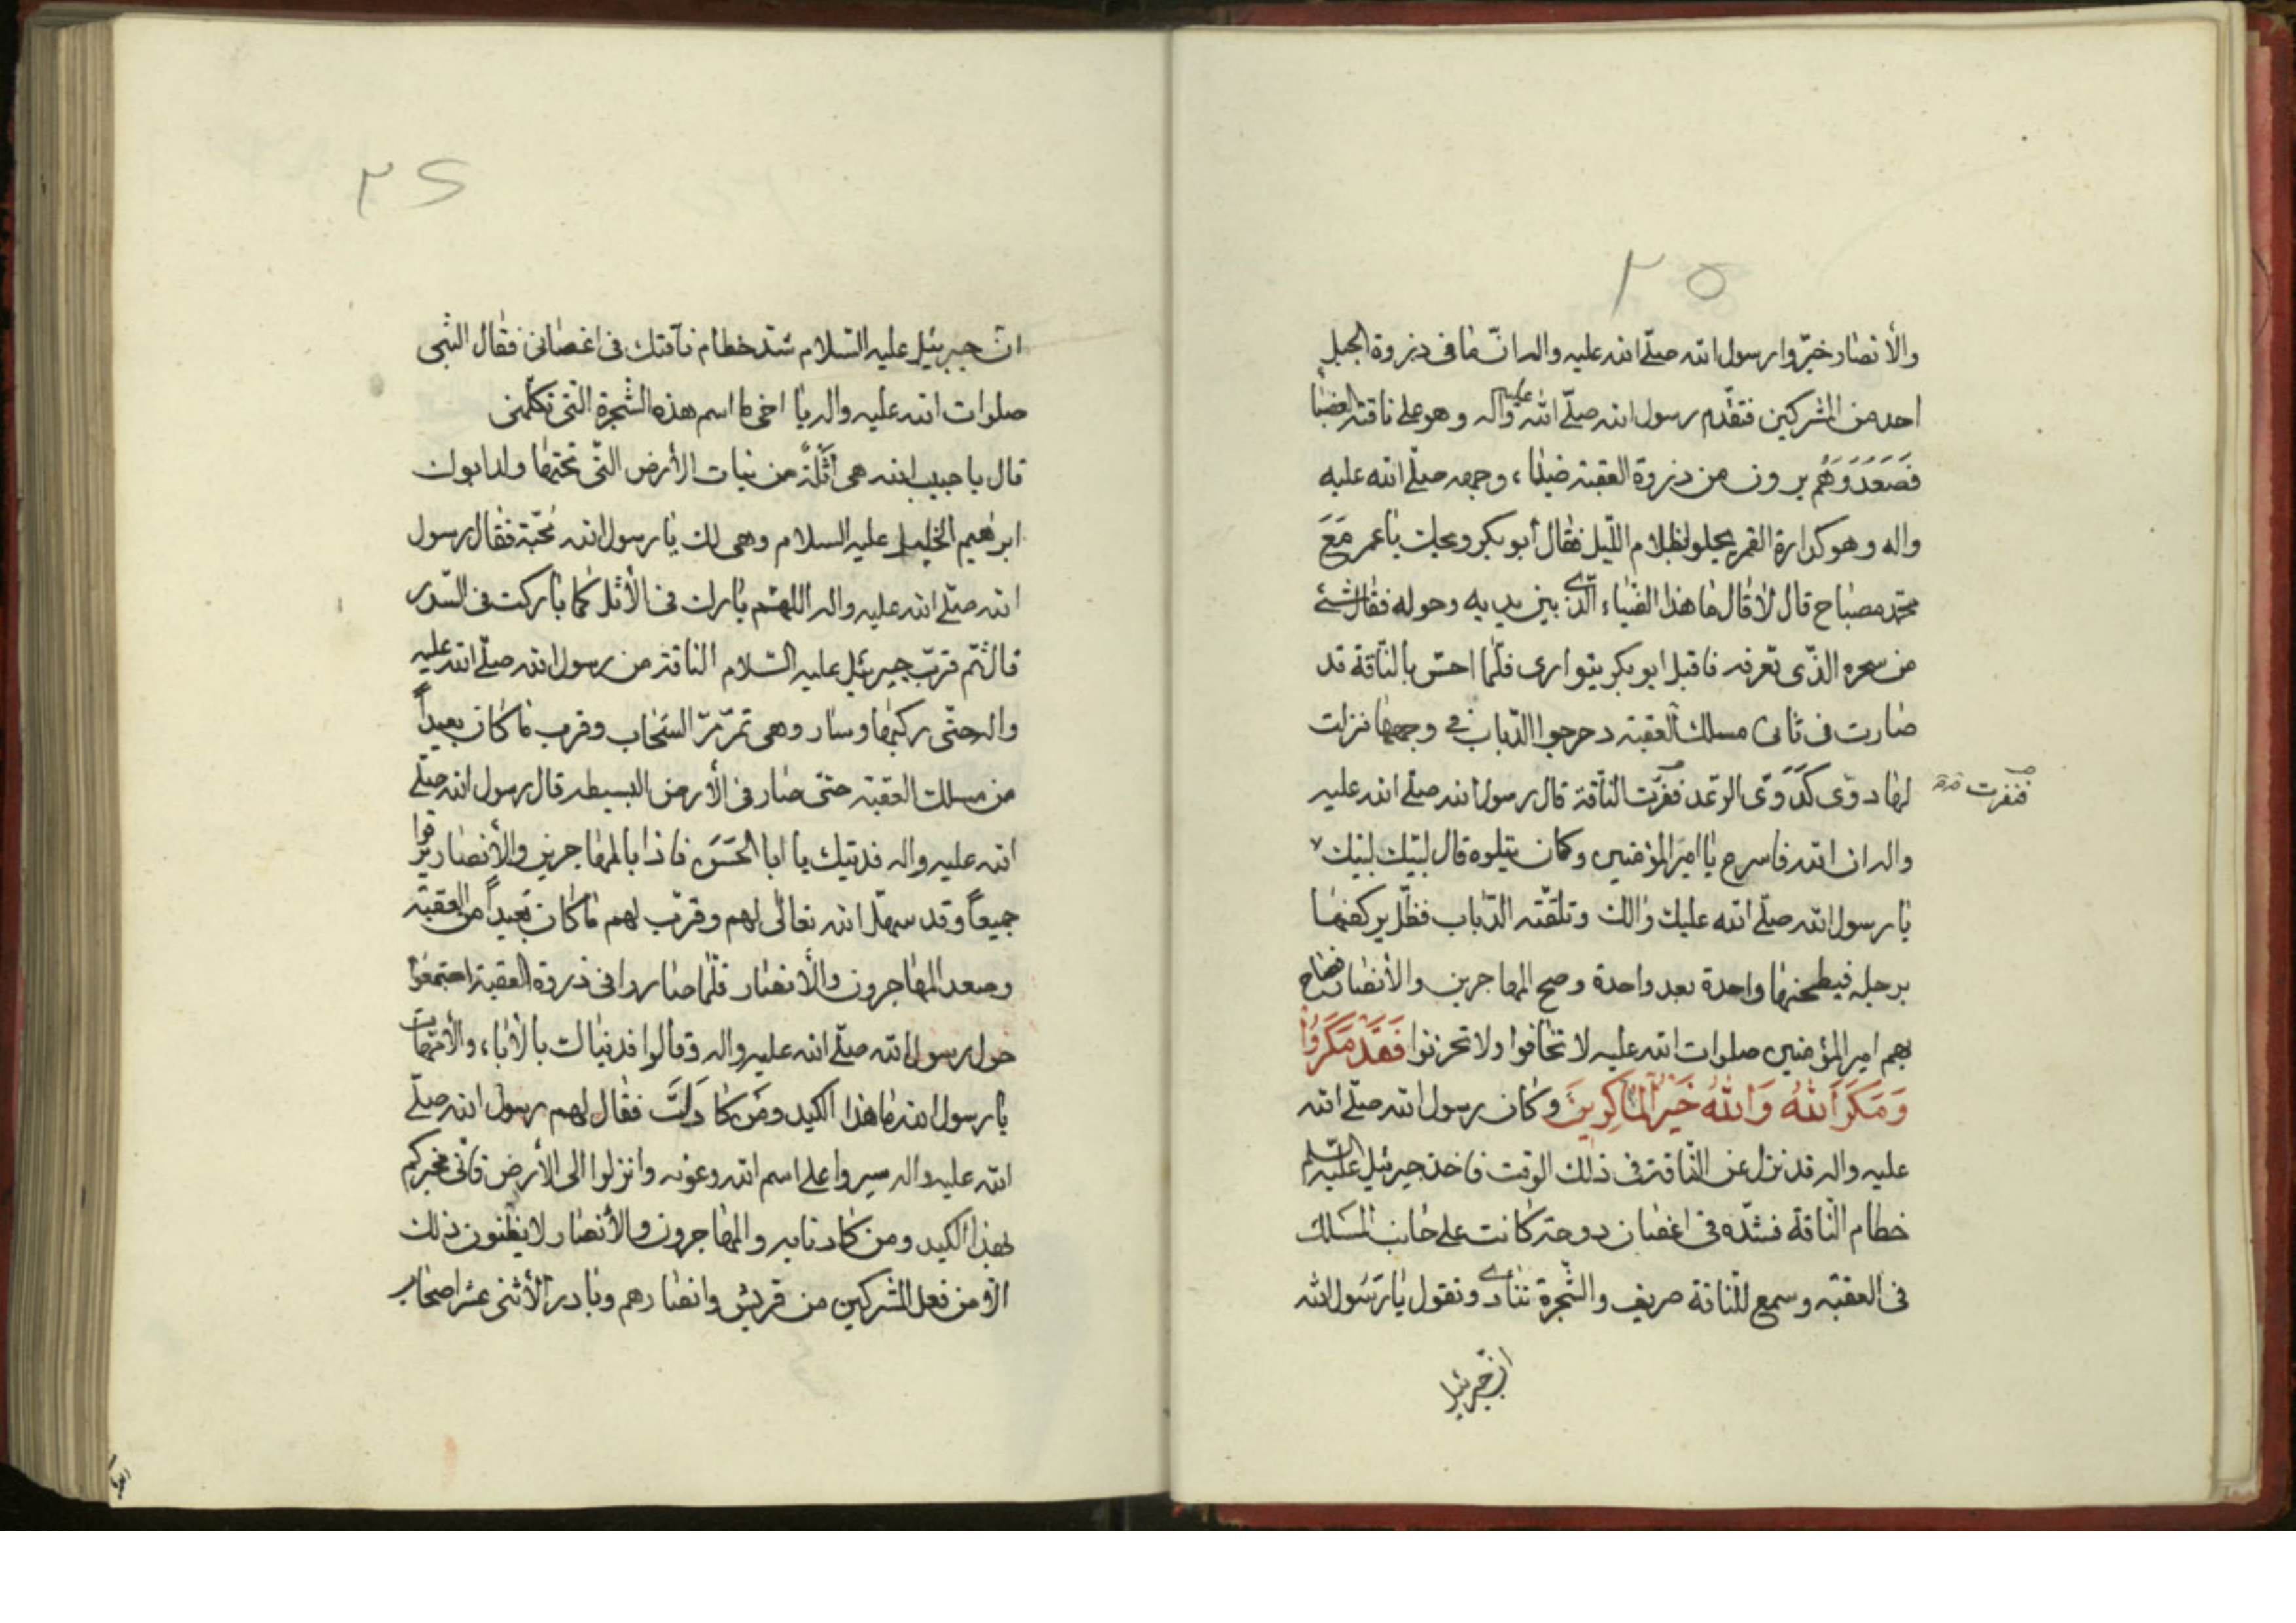 ٢٥
والأنصار خبّروا رسول الله صلّے الله عليه واله انّ ما فى ذروة الجبل
احد من المشركين فتقدّم رسول الله صلّے الله عليه واله وهو على ناقته العضبا
فَصَعَدَ وَهُم يرون من ذروة العقبة ضياء، وجهه صلّے الله عليه
واله وهو كدارة القمر يجلو لظلام اللّيل فقال أبو بكر ويحك يا عمر مَعَ
محمّد مصباح قال لا قال ما هذا الضياء الّذے بين يديه وحوله فقال شئ
من سحره الذّى تعرفه فاقبل ابو بكر يتوارى فلّما احسّ بالنّاقة قد
صارت فى ثانى مسلك العقبة دحرجوا الدّباب فى وجهها نزلت
لها دوّى كَدَوّى الرّعد فنفرّت النّاقة قال رسول الله صلّے الله عليه
فنفرت
واله ان الله فاسرع يا امير المؤمنين وكان يتلوه قال لبّيك لبّيك
يا رسول الله صلّے الله عليك والك وتلقّته الدّباب فظلّ يركضها
برجله فيطحنها واحدة بعد واحدة وصح المهاجرين والأنصار فصاح
بهم امير المؤمنين صلوات الله عليه لا تخافوا ولا تحزنوا فَقَدْ مَكَرُوا
وَمَكَرَ اَللهُ وَاللهُ خَيْرُ الْمٰاكِرِينَ وكان رسول الله صلّے الله
عليه واله قد نزل عن النّاقة فى ذلك الوقت فاخذ جبرئيل عليه السّلم
خطام النّاقة فشدّه فى اغصان دوحة كانت على جانب المسَلك
فى العقبة وسمع للنّاقة صريف والشّجرة تنادے وتقول يا رَسُول الله
انّ جبرئيل
٢٦
انّ جبرئيل عليه السّلام شدّ خطام ناقتك فى اغصانى فقال النّبى
صلوات الله عليه واله يا اخى ما اسم هذه الشّجرة التى تكلّمنى
قال يا حبيب الله هى أَثْلَةٌ من نبات الأرض التّى تحتها ولد ابوك
ابرهيم الخليل عليه السلام وهى لك يا رسول الله محبّة فقال رسول
الله صلّے الله عليه واله اللهّم بارك فى الأثل كما باركت فى السّدر
قال ثمّ قرّب جبرئيل عليه السّلام الناقة من رسول الله صلّے الله عليه
واله حتّى ركبها وسار وهى تمرّ مرّ السّحاب وقرب ما كان بعيداً
من مسلك العقبة حتّى صار فى الأرض البسيطه قال رسول الله صلّے
الله عليه واله فديتك يا ابا الحَسَن فاذا بالمهاجرين والأنصار
جميعاً وقد سهّل الله تعالى لهم وقرّب لهم ما كان بَعيداً من العقبة
وصعد المهاجرون والأنصار فلّما صاروا فى ذروة العقبة اجتمعوا
حول رسول الله صلّے الله عليه واله وقالوا فديناك بالأباء، والأمّهات
يا رسول الله ما هذا الكيد ومَن كادَكَ فقال لهم رسول الله صلّے
الله عليه واله سيروا على اسم الله وعونه وانزلوا الى الأرض فانّى مخبركم
بهذا الكيد ومن كاد نابه والمهاجرون والأنصار لا يظنون ذلك
الّا من فعل المشركين من قريش وانصارهم وبادر الأثنى عشر اصحاب